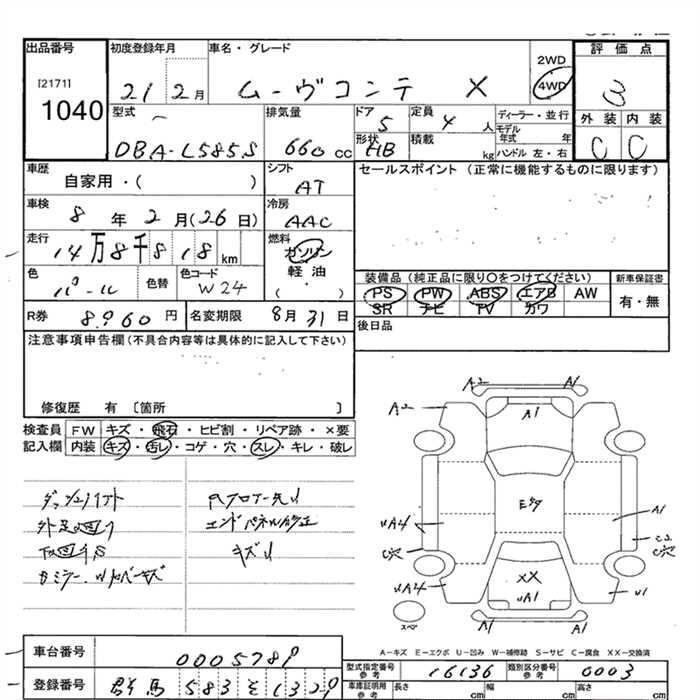 出品番号
[2171]
1040
初度登録年月
21 2月
車名・グレード
ムーヴコンテ X
2WD
4WD
評価点
3
外装 内装
C C
型式
DBA-L585S
排気量
660 cc
ドア
5
定員
4 人
形状
HB
積載
kg
ディーラー・並行
モデル年式 年
ハンドル 左・右
車歴
自家用・( )
シフト
AT
セールスポイント (正常に機能するものに限ります)
車検
8 年 2 月 (26 日)
冷房
AAC
走行
14万8千818 km
燃料
ガソリン
軽油
( ・ )
色
パール
色替
色コード
W24
装備品 (純正品に限り○をつけてください)
PS PW ABS エアB AW
SR ナビ TV カワ
新車保証書
有・無
R券
8960 円
名変期限
8月31日
後日品
注意事項申告欄 (不具合内容等は具体的に記入して下さい)
修復歴 有 〔箇所 〕
検査員記入欄
FW キズ・飛石・ヒビ割・リペア跡・×要
内装 キズ・汚レ・コゲ・穴・スレ・キレ・破レ
エンドパネル修正
キズU
A2 A1
A2
A1
Eタタ
UA4
A1
C2
C穴
C穴
UA4
XX
UA1
U1
A1 A1
スペア
A-キズ E-エクボ U-凹み W-補修跡 S-サビ C-腐食 XX-交換済
車台番号
0005789
登録番号
群馬 583 そ 1329
型式指定番号 参考
16136
類別区分番号 参考
0003
車庫証明用 参考
長さ cm
幅 cm
高さ cm